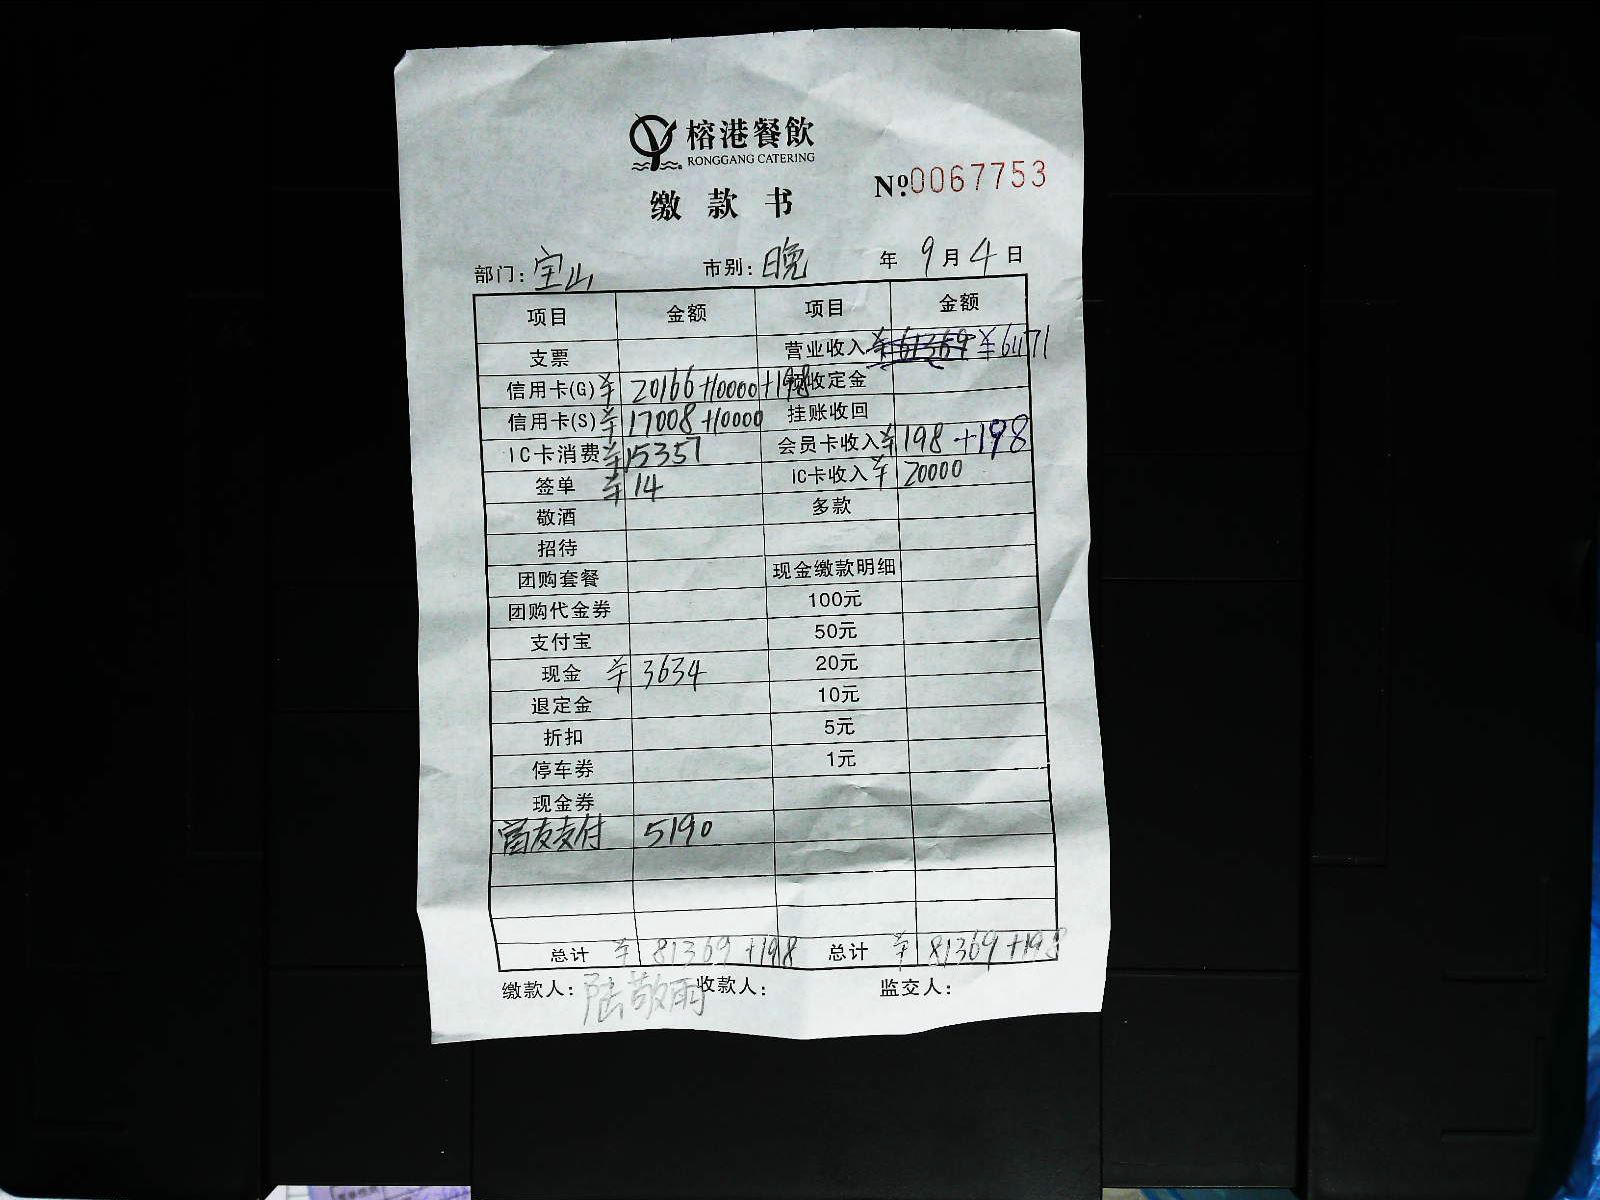 榕港餐飲
RONGGANG CATERING
缴款书 No.0067753
部门：宝山 市别：晚 年 9月4日
项目 金额 项目 金额
支票 营业收入 ¥61369 ¥61171
信用卡(G) ¥20166+10000+198 预收定金
信用卡(S) ¥17008+10000 挂账收回
IC卡消费 ¥15357 会员卡收入 ¥198+198
签单 ¥14 IC卡收入 ¥20000
敬酒 多款
招待
团购套餐 现金缴款明细
团购代金券 100元
支付宝 50元
现金 ¥3634 20元
退定金 10元
折扣 5元
停车券 1元
现金券
富友支付 5190
总计 ¥81369+198 总计 ¥81369+198
缴款人：陆敬雨 收款人： 监交人：